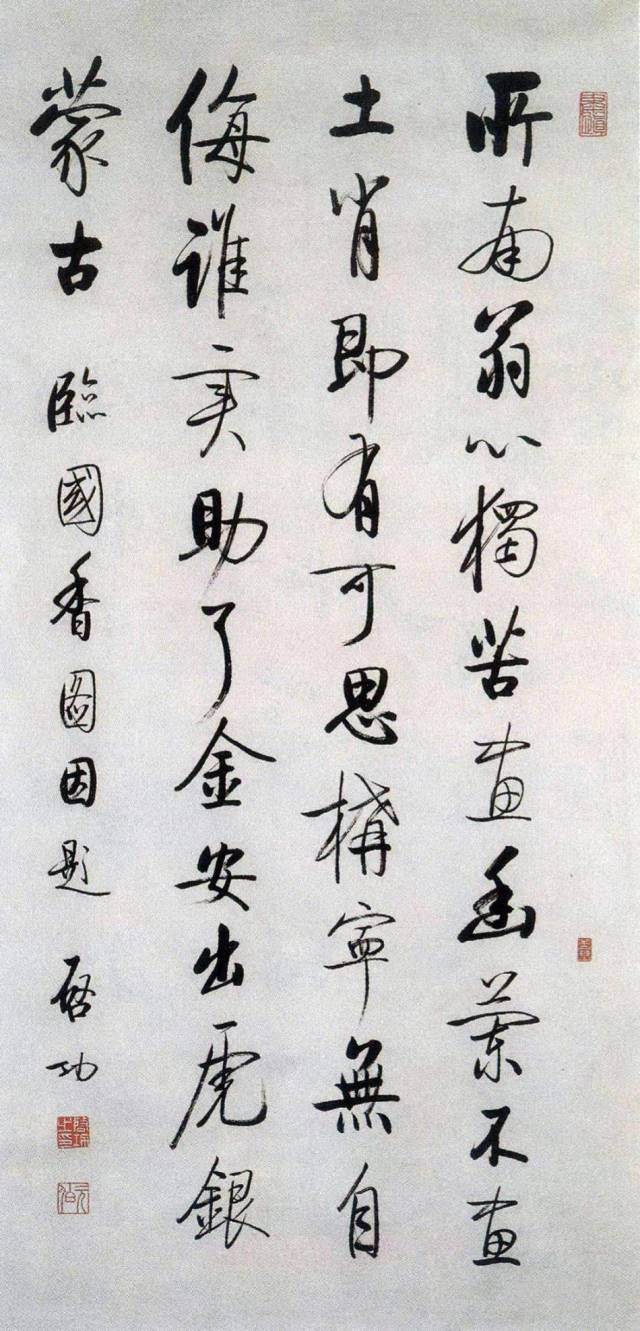 所南翁心獨苦畫幽蘭不畫
土肖即有可思構寧無自
侮誰实助了金安出虎銀
蒙古 臨國香圖因题 啓功